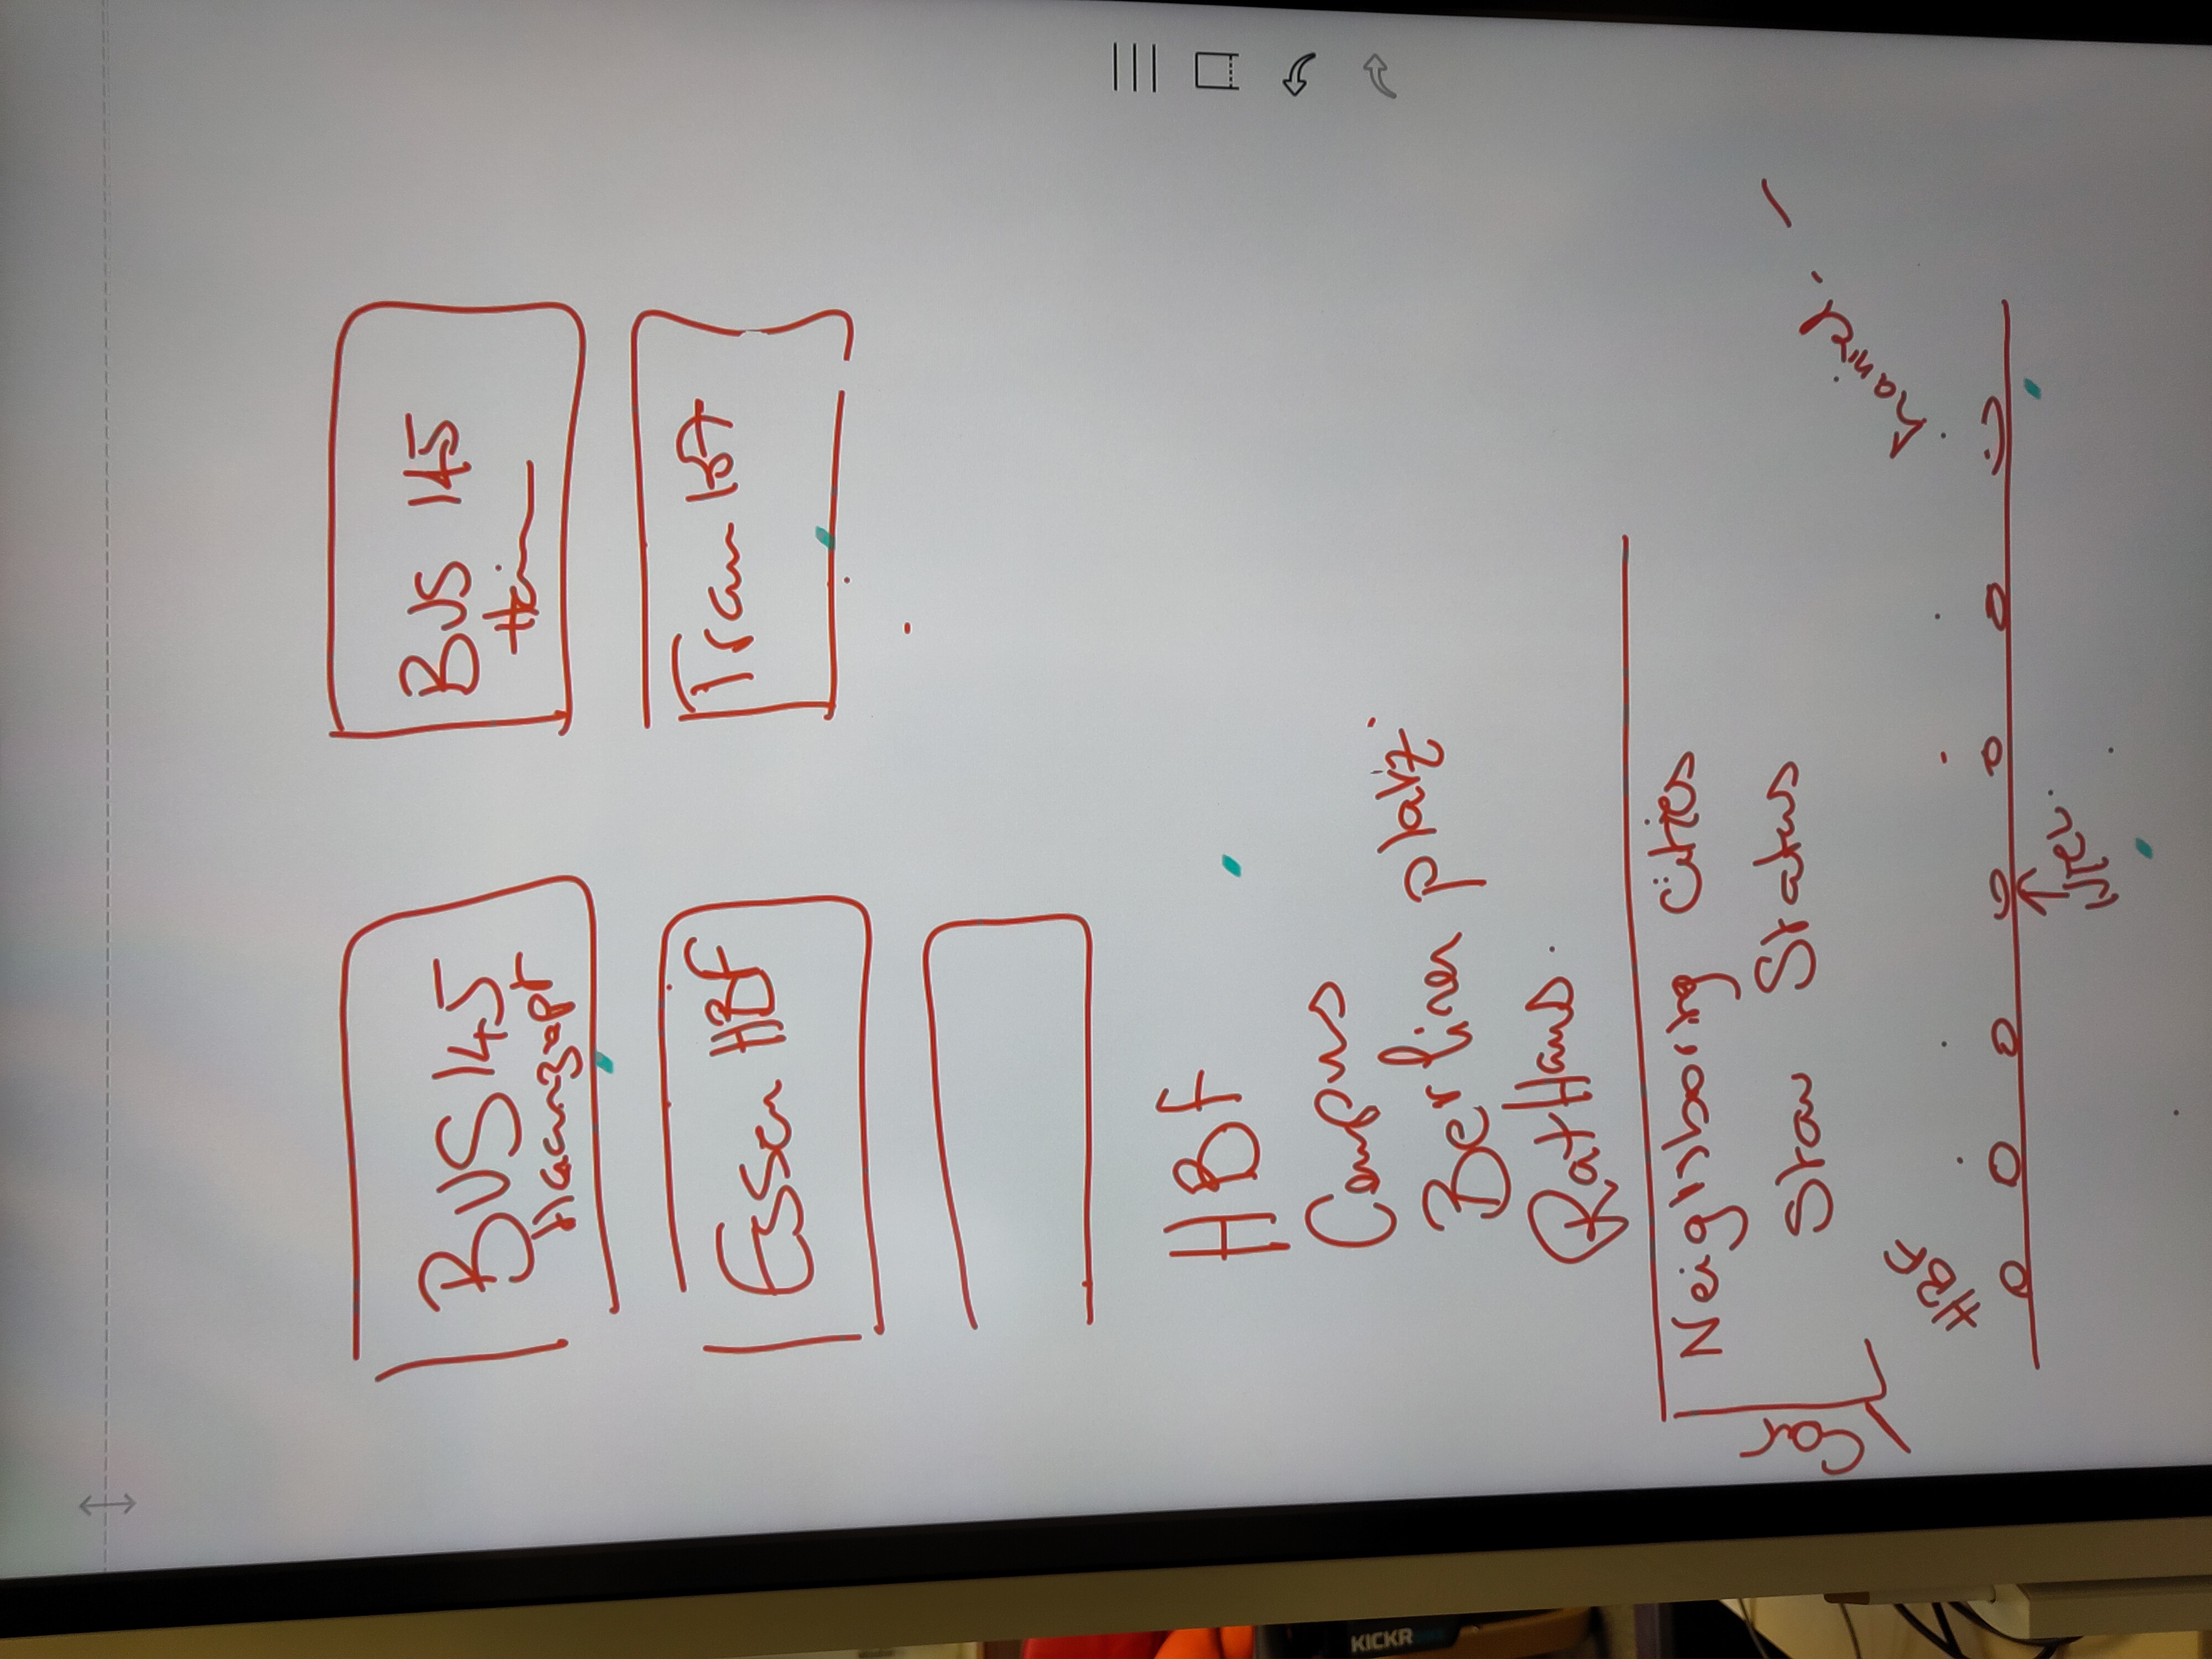 BUS 145
BUS 145
Essen HBF
Tram 107
HBF
Campus
Berliner platz
RatHaus
Neighboring Cities
Stau Status
Car
HBF
Haniel
KICKR